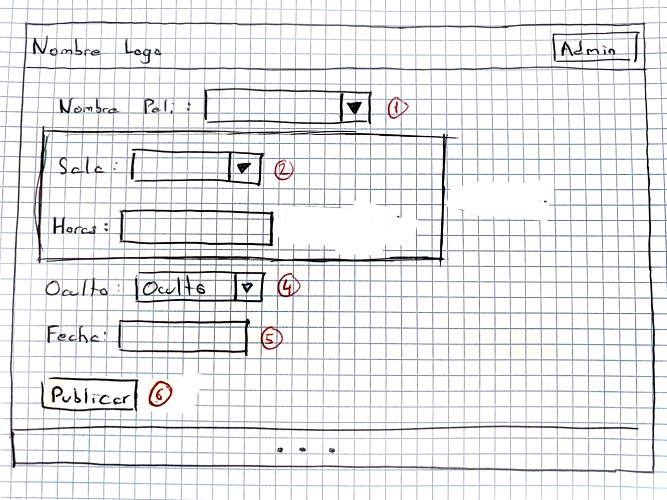 Nombre Logo
Admin
Nombre Peli: 1
Sala: 2
Horas:
Oculto: Oculto 4
Fecha: 5
Publicar 6
...